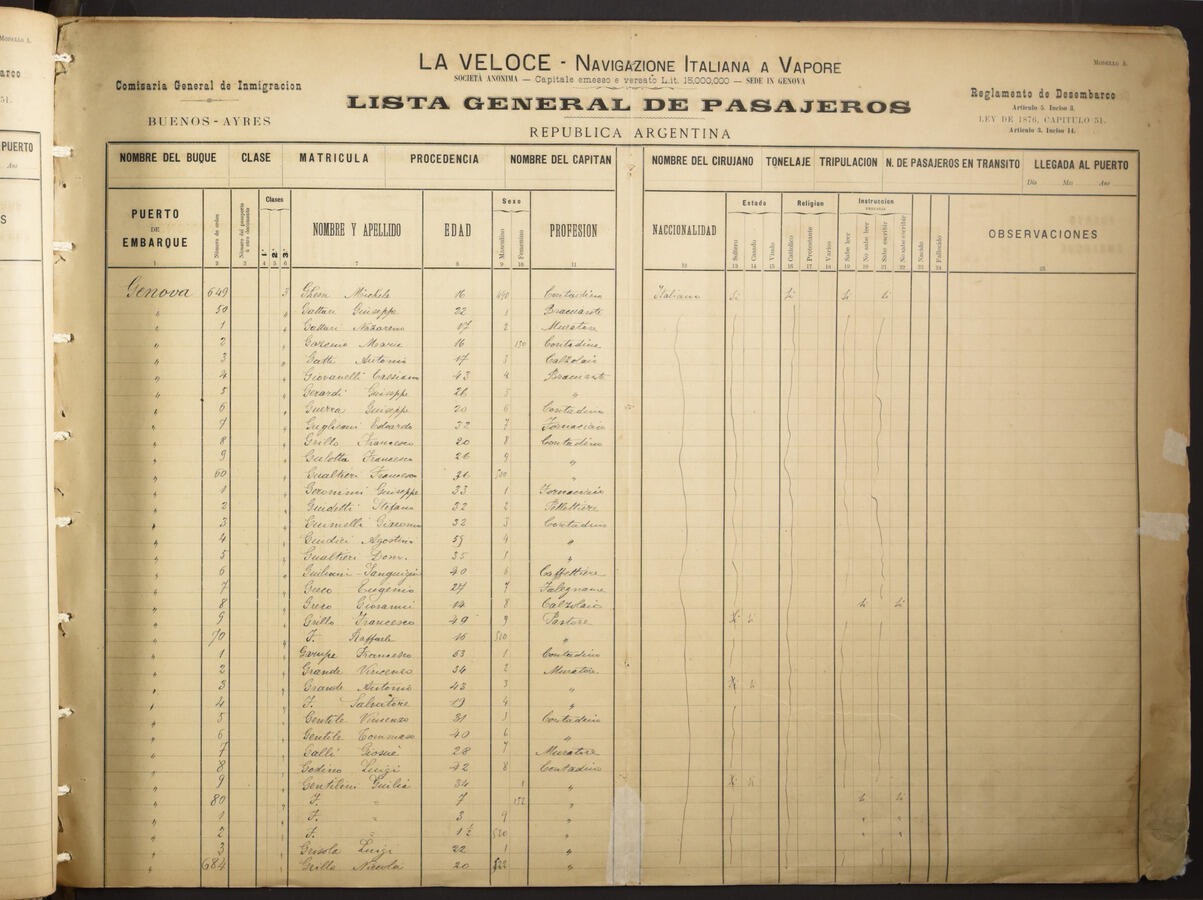 LA VELOCE - NAVIGAZIONE ITALIANA A VAPORE
MODELLO A.
SOCIETÀ ANONIMA — Capitale emesso e versato L.it. 15,000,000 — SEDE IN GENOVA
Comisaria General de Inmigracion
BUENOS-AYRES
LISTA GENERAL DE PASAJEROS
REPUBLICA ARGENTINA
Reglamento de Desembarco
Articulo 5. Inciso 3.
LEY DE 1876, CAPITULO 51.
Articulo 3. Inciso 14.
NOMBRE DEL BUQUE CLASE MATRICULA PROCEDENCIA NOMBRE DEL CAPITAN NOMBRE DEL CIRUJANO TONELAJE TRIPULACION N. DE PASAJEROS EN TRANSITO LLEGADA AL PUERTO
Dia Mes Ano
PUERTO DE EMBARQUE Número de orden Clases 1.ª 2.ª 3.ª NOMBRE Y APELLIDO EDAD Sexo Masculino Femenino PROFESION NACCIONALIDAD Estado Soltero Casado Viudo Religion Catolico Protestante Varios Instruccion Sabe leer No sabe leer Sabe escribir No sabe escribir Nacido Fallecido OBSERVACIONES
1 2 3 4 5 6 7 8 9 10 11 12 13 14 15 16 17 18 19 20 21 22 23 24 25
Genova 649 3 Michele 16 490 Contadino Italiana
" 50 " Gattari Giuseppe 22 1 Bracciante
" 1 " Nazareno 17 2 Muratore
" 2 " Maria 16 150 Contadina
" 3 " Gatti Antonio 17 3 Calzolaio
" 4 " Giovanelli Cassiano 43 4 Bracciante
" 5 " Gerardi Giuseppe 26 5 "
" 6 " Guerra Giuseppe 20 6 Contadino
" 7 " Edoardo 32 7 Fornaciaio
" 8 " Grillo Francesco 20 8 Contadino
" 9 " Galotta Francesco 26 9 "
" 60 " Gualtieri Francesco 500 "
" 1 " Geronimi Giuseppe 33 1 Fornaciaio
" 2 " Guidetti Stefano 32 2 Pellettiere
" 3 " Giacomo 32 3 Contadino
" 4 " Giudici Agostino 59 4 "
" 5 " Gualtieri Dom. 35 5 "
" 6 " Giuliani-Sanguigni 40 6 Caffettiere
" 7 " Greco Eugenio 24 7 Falegname
" 8 " Greco Giovanni 14 8 Calzolaio
" 9 " Grillo Francesco 49 9 Pastore
" 70 " F. Raffaele 16 510 "
" 1 " Francesco 53 1 Contadino
" 2 " Grande Vincenzo 34 2 Muratore
" 3 " Grande Antonio 43 3 "
" 4 " F. Salvatore 19 4 "
" 5 " Gentile Vincenzo 31 5 Contadino
" 6 " Gentile Tommaso 40 6 "
" 7 " Galli Giosuè 28 7 Muratore
" 8 " Godino Luigi 42 8 Contadino
" 9 " Gentilini Giulia 34 1 "
" 80 " F. " 7 152 "
" 1 " F. " 3 9 "
" 2 " F. " 1½ 520 "
" 3 " Luigi 22 1 "
684 " Grillo Nicola 20 522 "